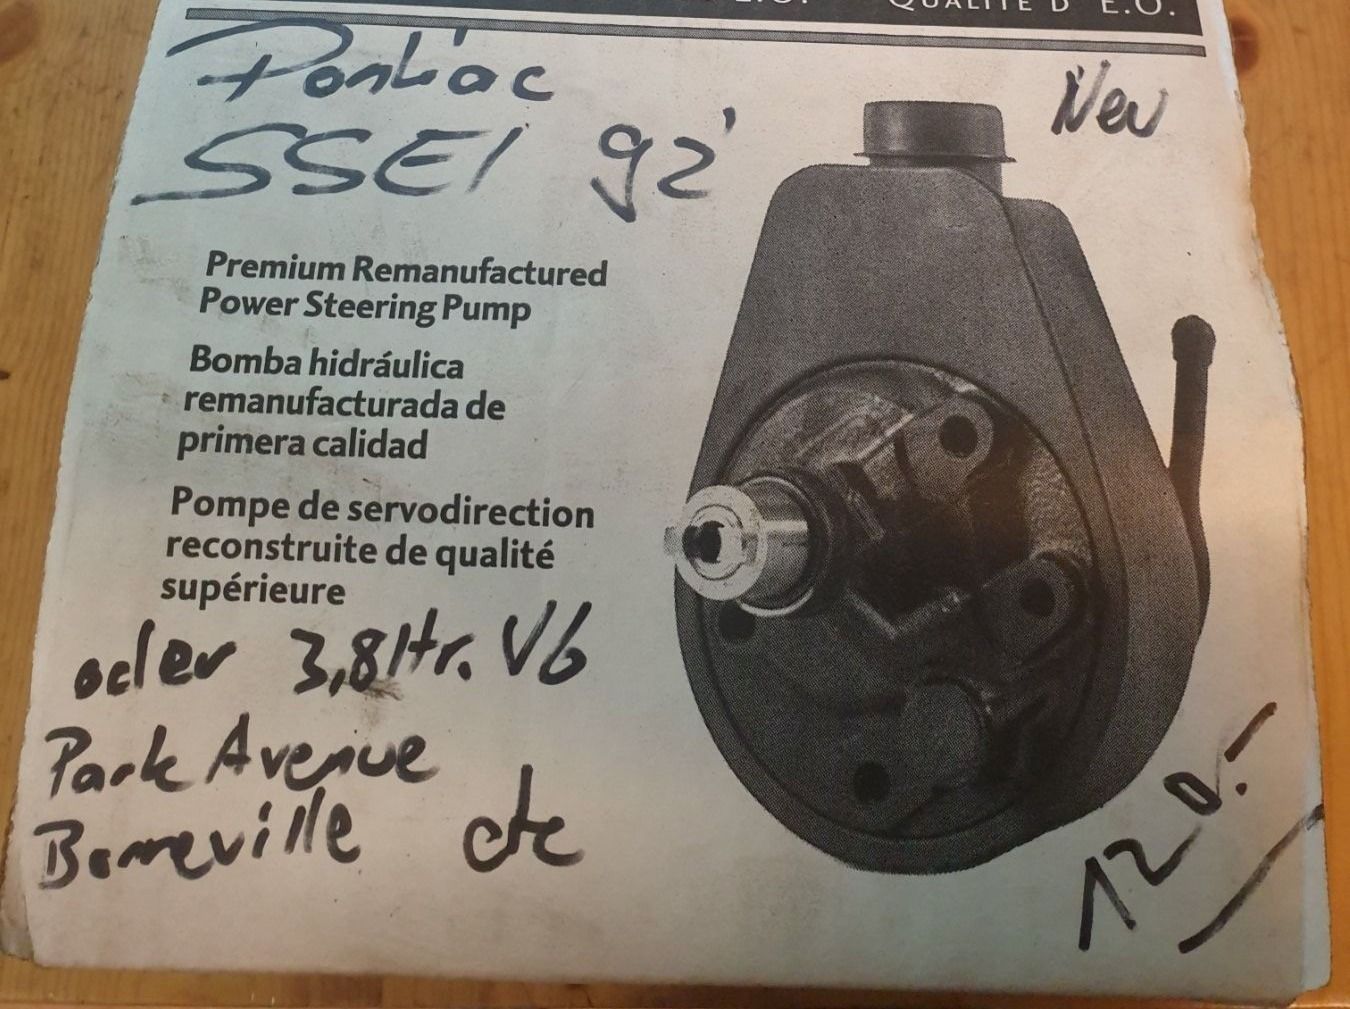 QUALITÉ D' E.O.
Pontiac
Neu
SSEI 92'
Premium Remanufactured
Power Steering Pump
Bomba hidráulica
remanufacturada de
primera calidad
Pompe de servodirection
reconstruite de qualité
supérieure
oder 3,8 ltr. V6
Park Avenue
Bonneville etc
120.-